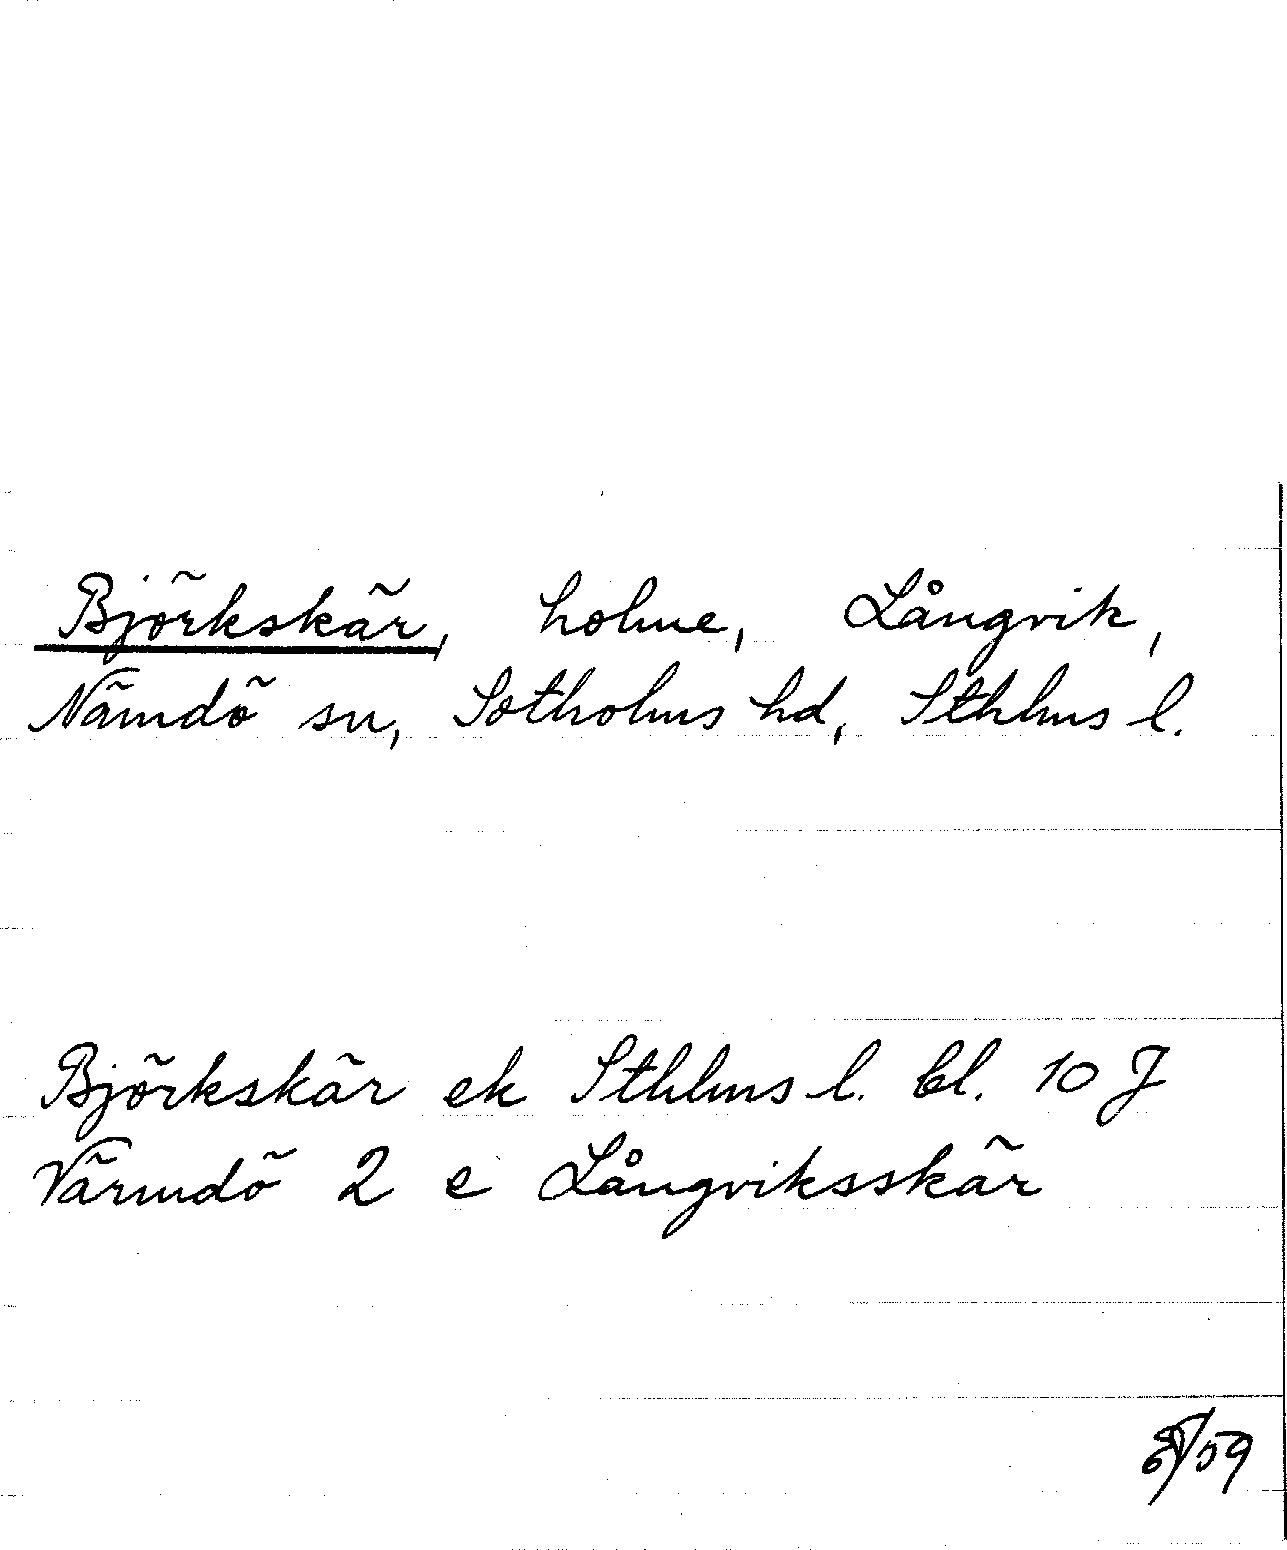 Björkskär, holme, Långvik,
Nämdö sn, Sotholms hd, Sthlms l.
Björkskär ek Sthlms l. bl. 10 J
Värmdö 2 e Långviksskär